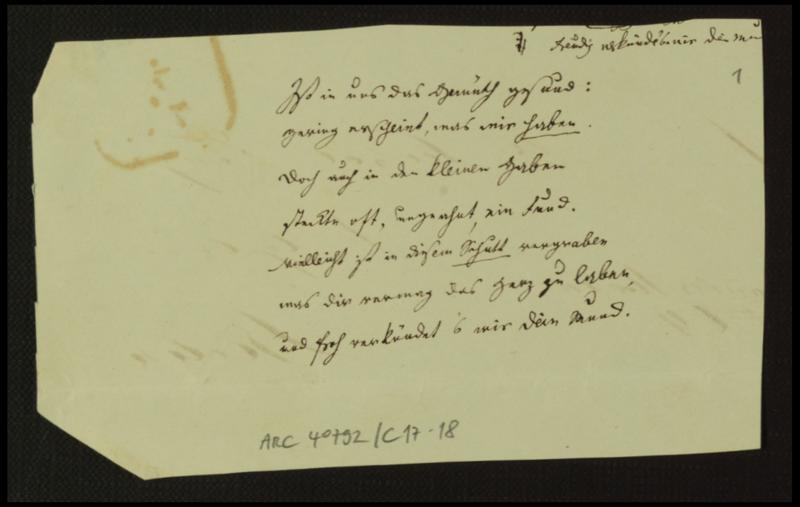 freudig verkünde mir dein Mun
1
Ist in uns das Gemüth gesund:
gering erscheint, was wir haben.
Doch auch in den kleinen Gaben
steckte oft, ungeahnt, ein Fund.
vielleicht ist in diesem Schutt vergraben
was dir vermag das Herz zu laben,
und froh verkündet's mir dein Mund.
ARC 40792/C17-18